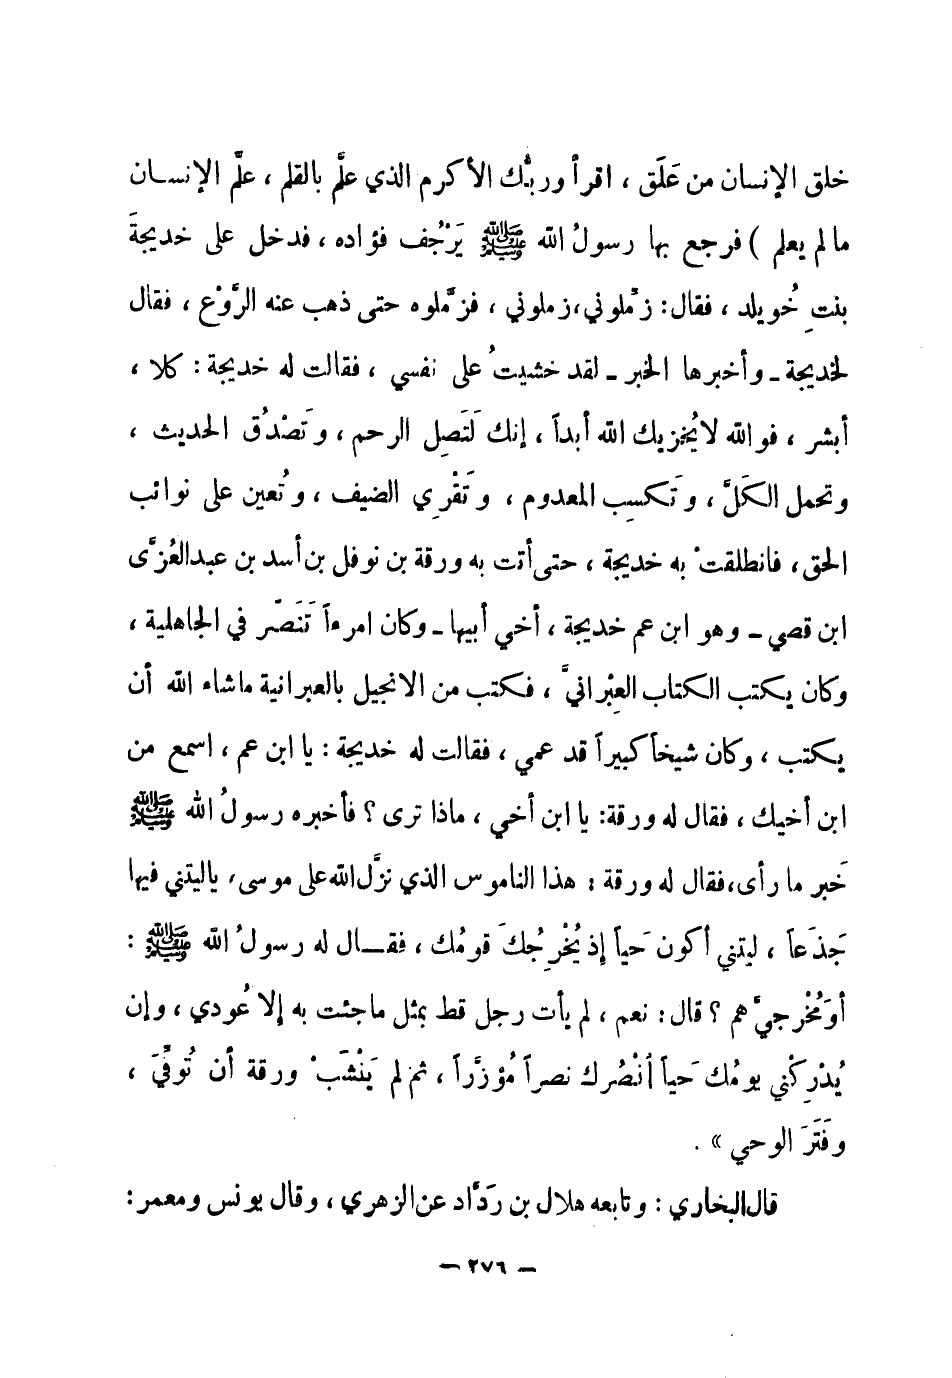 خلق الإنسان من عَلَق ، اقرأ وربُّك الأكرم الذي علَّم بالقلم ، علَّم الإنسان
ما لم يعلم ) فرجع بها رسولُ الله ﷺ يَرْجُف فؤاده ، فدخل على خديجةَ
بنتِ خُويلد ، فقال : زمّلوني ، زملوني ، فزمَّلوه حتى ذهب عنه الرَّوْع ، فقال
لخديجة ـ وأخبرها الخبر ـ لقد خشيتُ على نفسي ، فقالت له خديجة : كلا ،
أبشر ، فوالله لا يُخزيك الله أبداً ، إنك لَتَصِل الرحم ، وتَصْدُق الحديث ،
وتحمل الكَلَّ ، وتَكسِب المعدوم ، وتَقْرِي الضيف ، وتُعين على نوائب
الحق ، فانطلقتْ به خديجة ، حتى أتت به ورقة بن نوفل بن أسد بن عبد العُزَّى
ابن قصي ـ وهو ابن عم خديجة ، أخي أبيها ـ وكان امرءاً تَنَصّر في الجاهلية ،
وكان يكتب الكتاب العِبْرانيَّ ، فكتب من الانجيل بالعبرانية ما شاء الله أن
يكتب ، وكان شيخاً كبيراً قد عمي ، فقالت له خديجة : يا ابن عم ، اسمع من
ابن أخيك ، فقال له ورقة : يا ابن أخي ، ماذا ترى ؟ فأخبره رسولُ الله ﷺ
خَبر ما رأى ، فقال له ورقة : هذا الناموس الذي نزَّل الله على موسى ، يا ليتني فيها
جَذَعاً ، ليتني أكون حَياً إذ يُخْرِجُكَ قومُك ، فقــال له رسولُ الله ﷺ :
أوَمُخْرِجيَّ هم ؟ قال : نعم ، لم يأت رجل قط بمثل ما جئت به إلا عُودي ، وإن
يُدْرِكْني يومُك حَياً أنْصُرك نصراً مُؤزَّراً ، ثم لم يَنْشَبْ ورقة أن تُوفِّيَ ،
وفَتَرَ الوحي » .
قال البخاري : وتابعه هلال بن رَدَّاد عن الزهري ، وقال يونس ومعمر :
— ٢٧٦ —